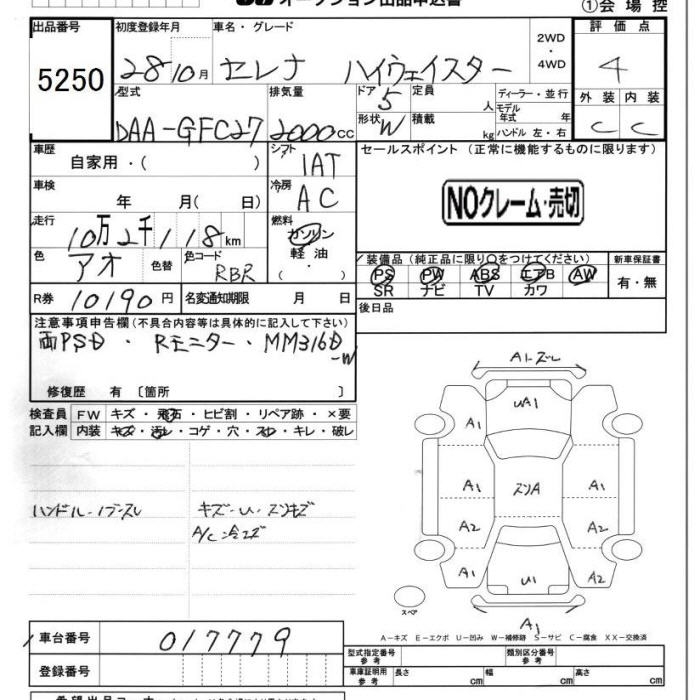 オークション出品申込書 ①会場控
出品番号 初度登録年月 車名・グレード 2WD ・ 4WD 評価点
5250 28/10月 セレナ ハイウェイスター 4
型式 排気量 ドア 5 定員 人 ディーラー・並行 外装 内装
DAA-GFC27 2000cc 形状 W 積載 kg モデル年式 年 ハンドル 左・右 C C
車歴 自家用・( ) シフト IAT セールスポイント (正常に機能するものに限ります)
車検 年 月( 日) 冷房 AC NOクレーム・売切
走行 10万2千118km 燃料 ガソリン 軽油 ・( )
色 アオ 色替 色コード RBR 装備品(純正品に限り○をつけてください) 新車保証書
PS PW ABS エアB AW 有・無
SR ナビ TV カワ
R券 10190円 名変通知期限 月 日 後日品
注意事項申告欄(不具合内容等は具体的に記入して下さい)
両PSD・Rモニター・MM316D-W
修復歴 有 〔箇所 〕
検査員 FW キズ・飛石・ヒビ割・リペア跡・×要
記入欄 内装 キズ・汚レ・コゲ・穴・スレ・キレ・破レ
A1・ズレ
UA1
A1
A1 スンA A1
A2 A2
A1 U1 A2
A1
スペア
ハンドル・ノブスレ キズ・U・スンキズ
A/C
A-キズ E-エクボ U-凹み W-補修跡 S-サビ C-腐食 XX-交換済
車台番号 017779
型式指定番号 参考 類別区分番号 参考
登録番号 車庫証明用 参考 長さ cm 幅 cm 高さ cm